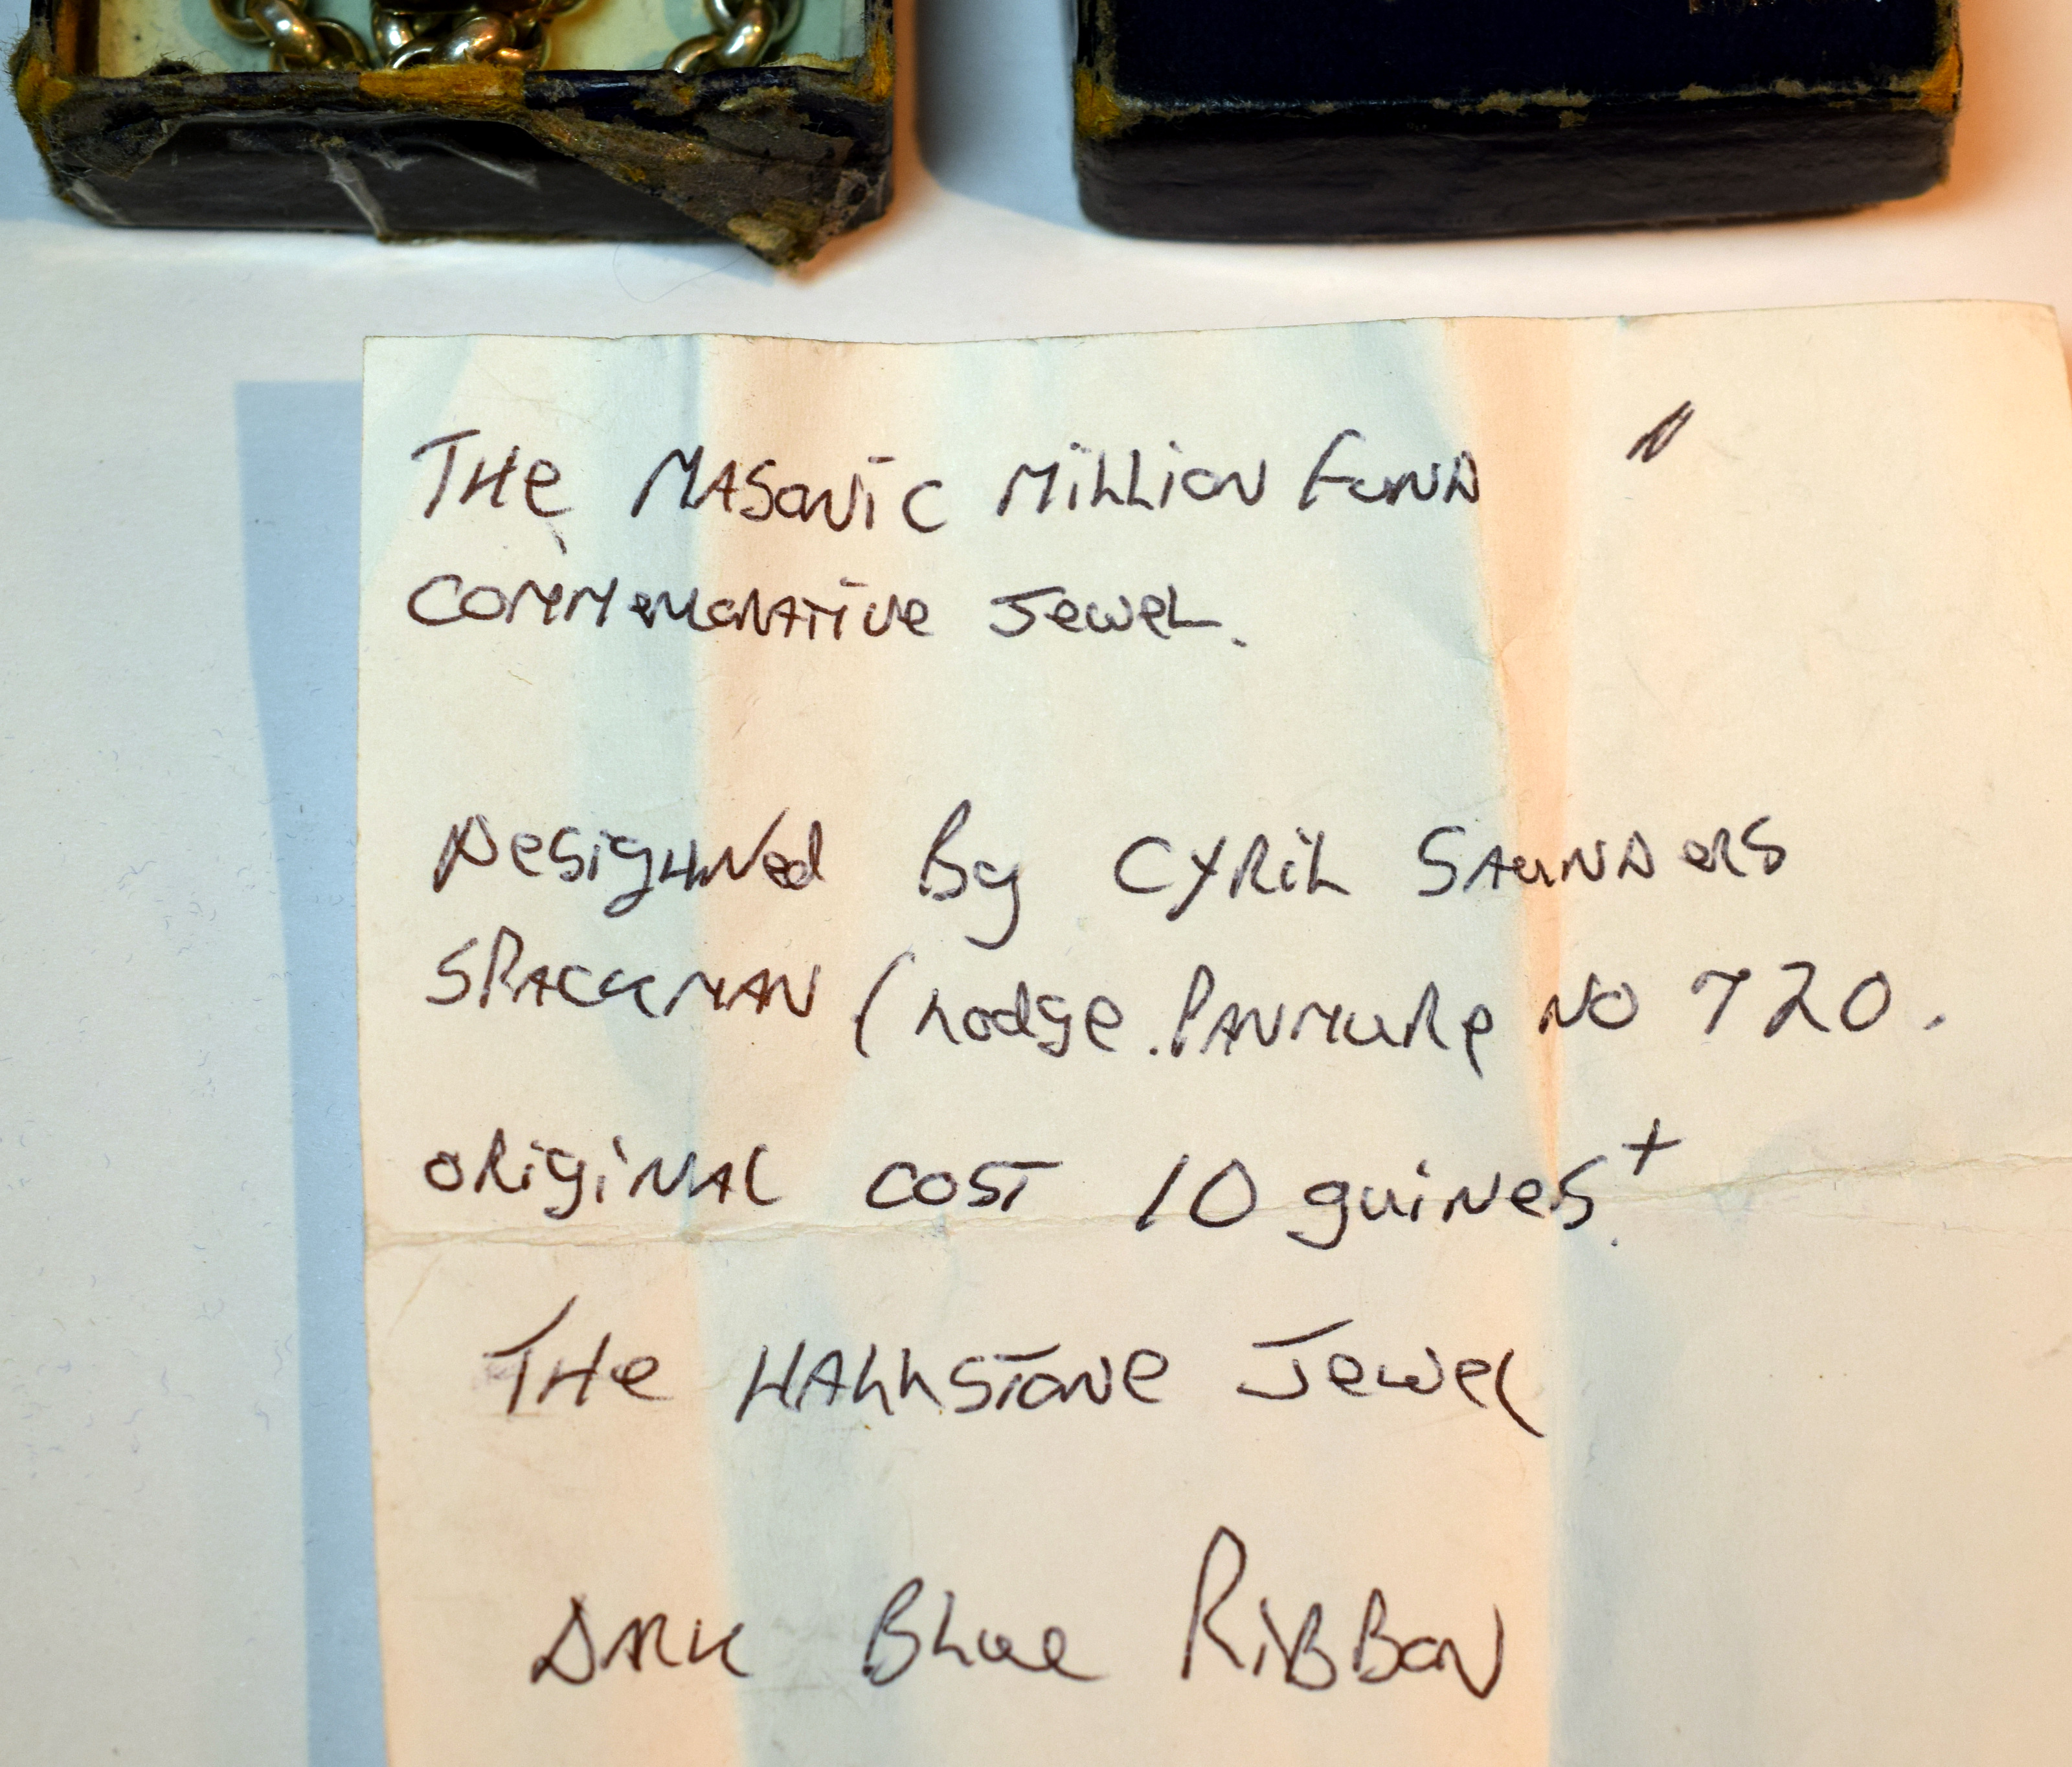 THe MASONiC MiLLiON FuND "
COMMeMORATiVe JeweL.
DeSigNed By CYRiL SAuNDeRS
SPACKMAN (Lodge.PANMuRe NO 720.
ORigiNAL COST 10 guiNeS+
THe HALLSTONe JeweL
DARK BLue RiBBON